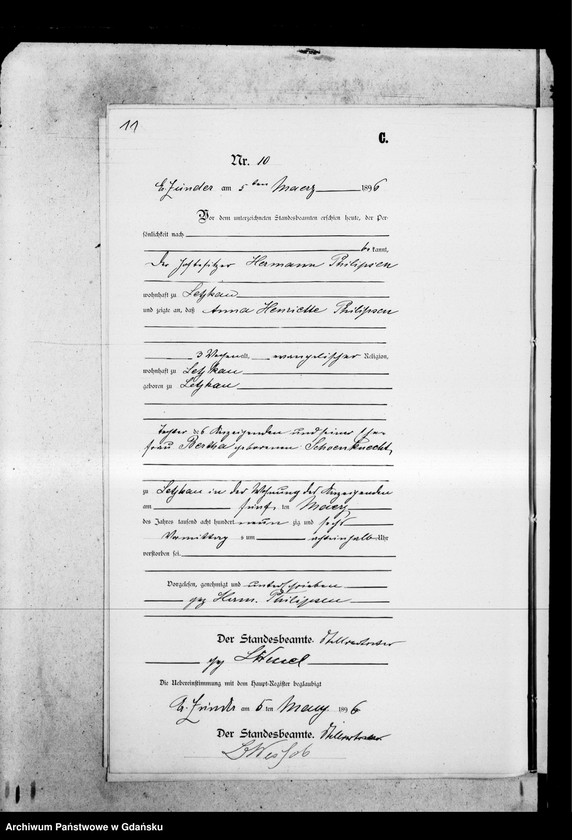 11
C.
Nr. 10
Gr. Zünder am 5 ten Maerz 1896
Vor dem unterzeichneten Standesbeamten erschien heute, der Per-
sönlichkeit nach
be kannt,
der Hofbesitzer Hermann Philipsen
wohnhaft zu Letzkau
und zeigte an, daß Anna Henriette Philipsen
3 Wochen alt, evangelischer Religion,
wohnhaft zu Letzkau
geboren zu Letzkau
Tochter des Anzeigenden und seiner Ehe-
frau Bertha geborenen Schoenknecht,
zu Letzkau in der Wohnung des Anzeigenden
am fünf ten Maerz
des Jahres tausend acht hundert neun zig und sechs
Vormittag s um Uhr
verstorben sei.
Vorgelesen, genehmigt und unterschrieben
gez Herm. Philipsen
Der Standesbeamte. Stellvertreter
gez
Die Uebereinstimmung mit dem Haupt-Register beglaubigt
Gr. Zünder am 5 ten Maerz 1896
Der Standesbeamte. Stellvertreter
Archiwum Państwowe w Gdańsku